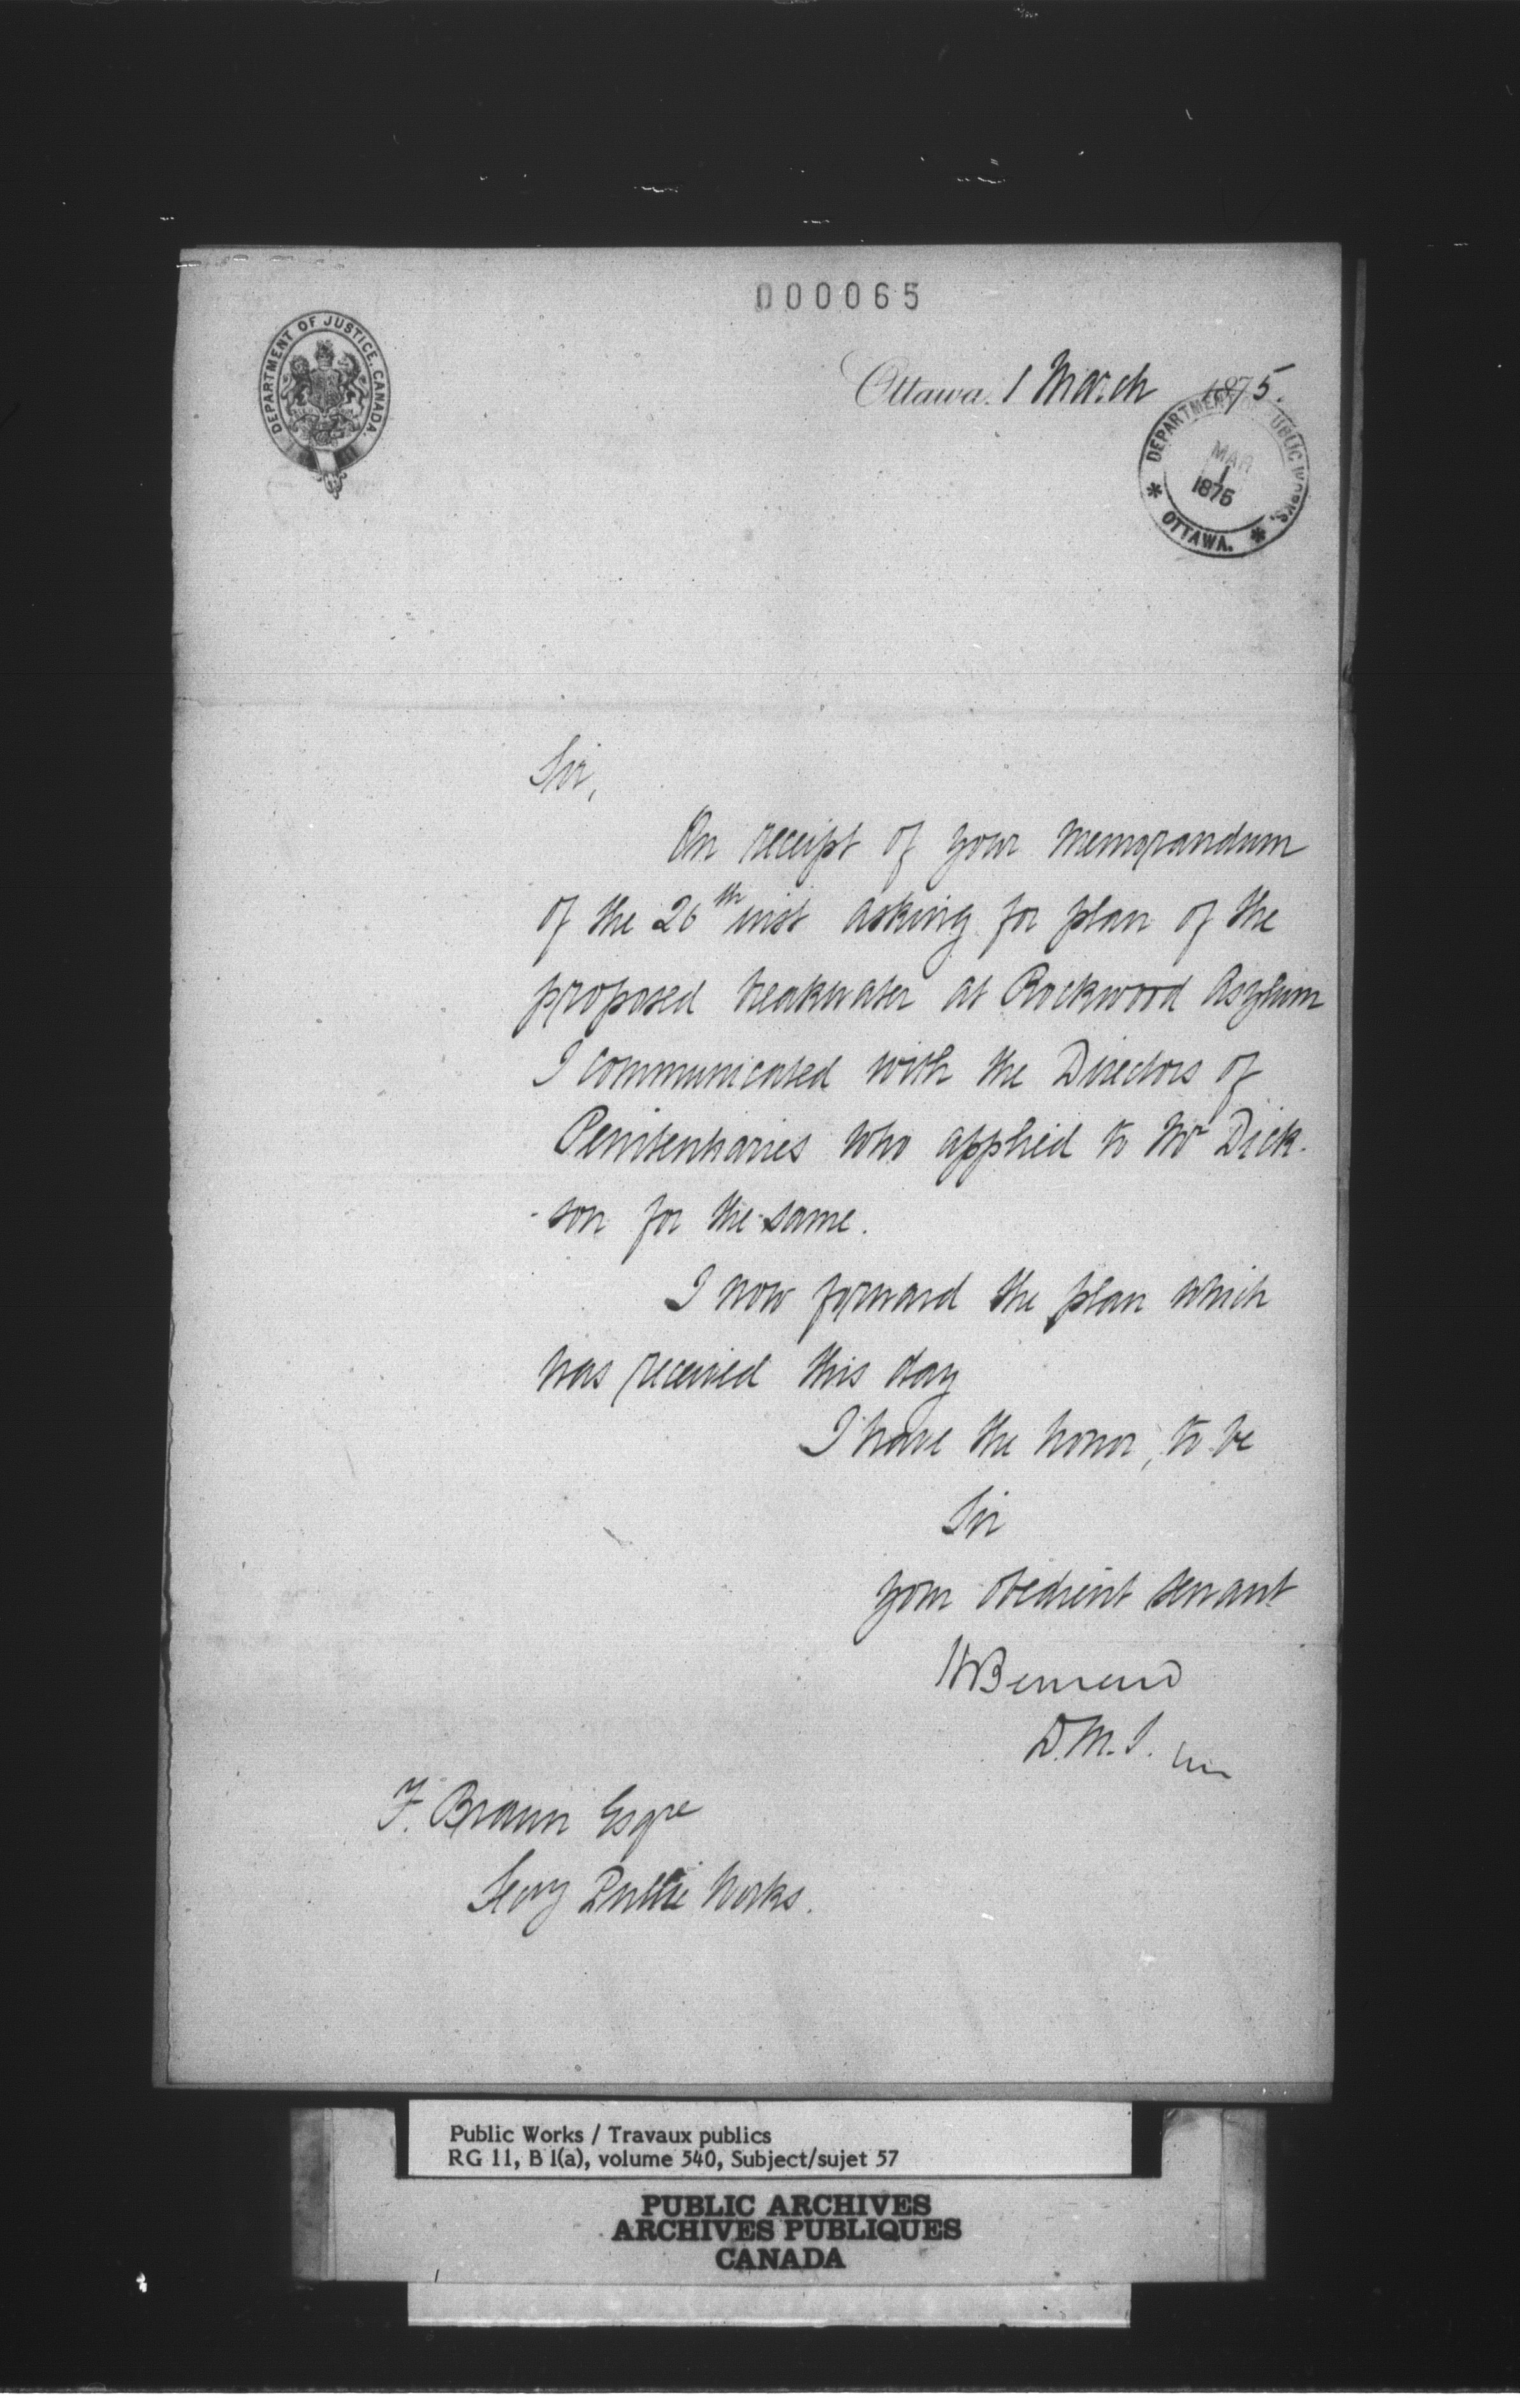 000065
DEPARTMENT OF JUSTICE, CANADA.
Ottawa. 1 March 1875.
DEPARTMENT OF PUBLIC WORKS.
MAR
1
1876
* OTTAWA. *
Sir,
On receipt of your memorandum
of the 26th inst asking for plan of the
proposed breakwater at Rockwood Asylum
I communicated with the Directors of
Penitentiaries who applied to Mr Dick-
-son for the same.
I now forward the plan which
was received this day
I have the honor, to be
Sir
your obedient servant
HBernard
D.M.J.
F. Braun Esqre
Secy Public Works.
Public Works / Travaux publics
RG 11, B 1(a), volume 540, Subject/sujet 57
PUBLIC ARCHIVES
ARCHIVES PUBLIQUES
CANADA